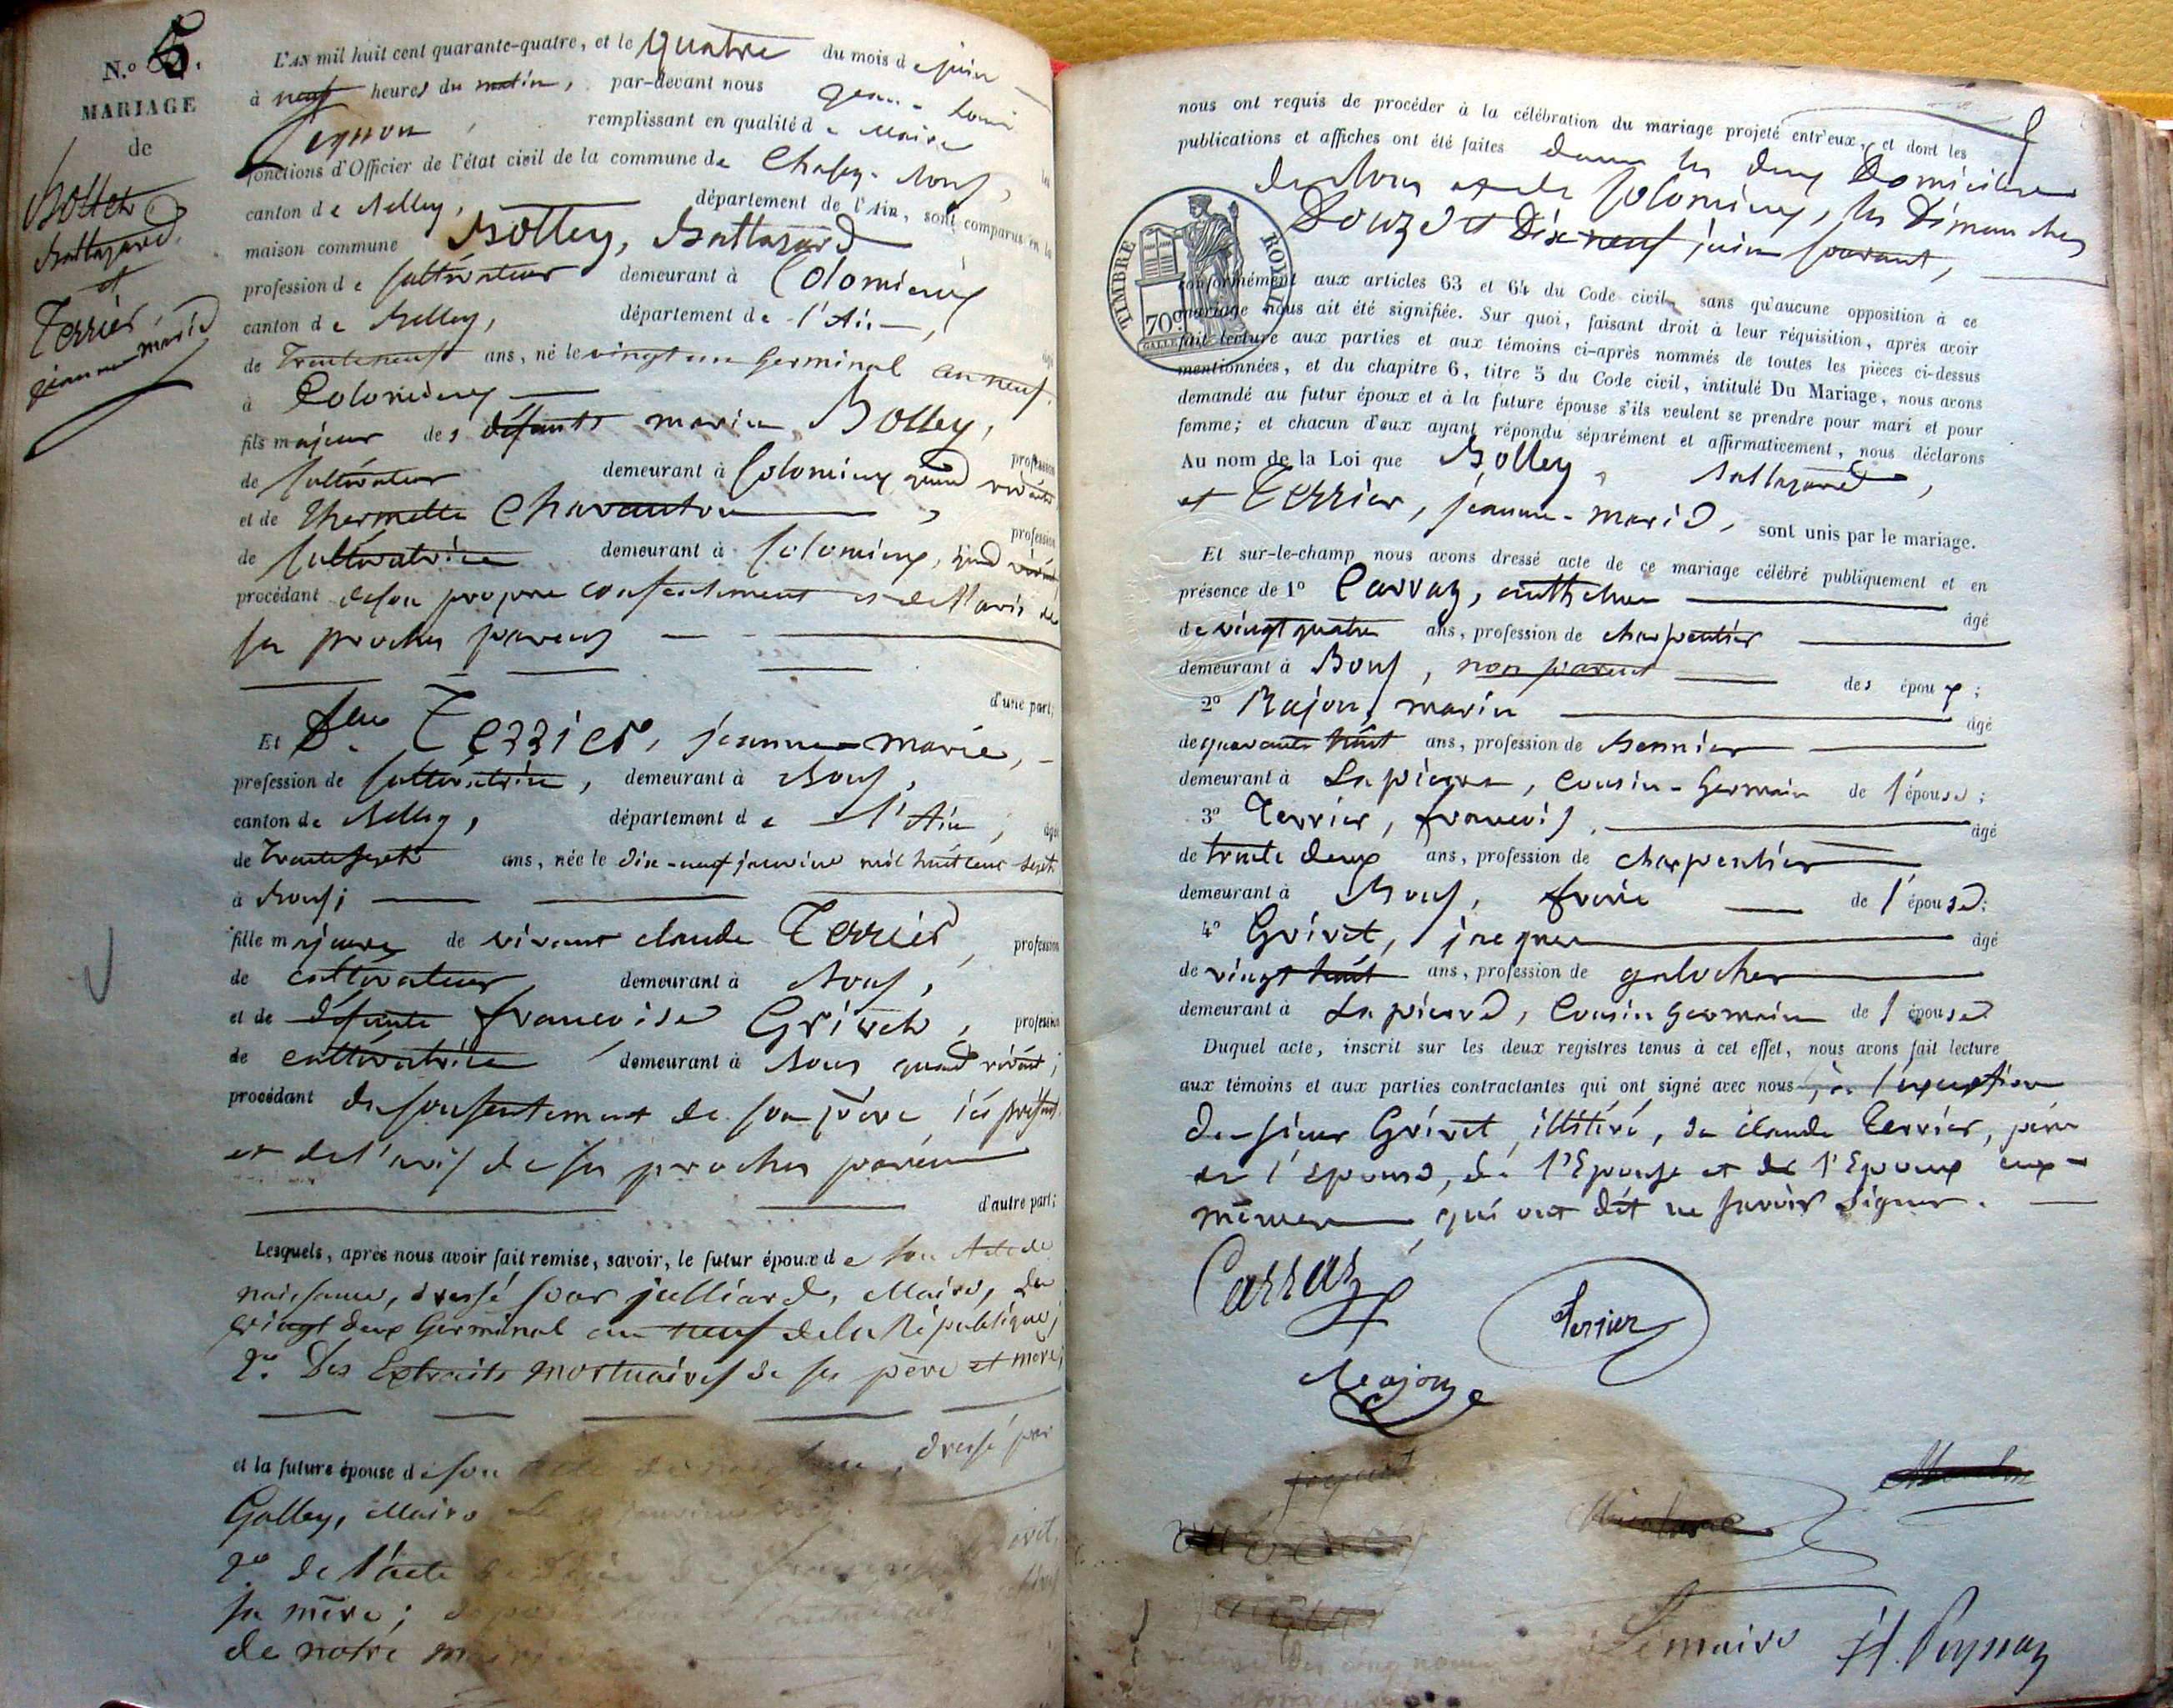 N.o 5.
MARIAGE
de
Bolley
Baltazard
et
Terrier
jeanne marie
L'AN mil huit cent quarante-quatre, et le quatre du mois de juin
à neuf heures du matin, par-devant nous jean-Louis
Peysson, remplissant en qualité de Maire
fonctions d'Officier de l'état civil de la commune de Chazey-Bons, les
canton de Belley, département de l'Ain, sont comparus en la
maison commune Bolley, Baltazard
profession de Cultivateur demeurant à Colomieux
canton de Belley, département de l'Ain, âgé
de Trente neuf ans, né le vingt un Germinal an neuf.
à Colomieux
fils majeur des défunts marin Bolley, profession
de Cultivateur demeurant à Colomieux quand vivait
et de Thermette Chavanton, profession
de Cultivatrice demeurant à Colomieux, quand vivait
procédant de son propre consentement et de l'avis de
ses proches parens
d'une part;
Et Dlle Terrier, jeanne-marie,
profession de Cultivatrice, demeurant à Bons,
canton de Belley, département de l'Ain, âgée
de Trente sept ans, née le dix-neuf janvier mil huit cent sept
à Bons;
fille majeure de vivant claude Terrier, profession
de cultivateur demeurant à Bons,
et de défunte francoise Grivet, profession
de cultivatrice demeurant à Bons quand vivait;
procédant du Consentement de son père ici présent
et de l'avis de ses proches parens
d'autre part;
Lesquels, après nous avoir fait remise, savoir, le futur époux de son Acte de
naissance, dressé par julliard, Maire, du
vingt deux Germinal an neuf de la République;
2o. Des Extraits mortuaires de ses père et mère;
et la future épouse de son acte de naissance, dressé par
Golley, Maire, le janvier
2o de l'acte de décès de francoise Grivet,
sa mère;
de notre mairie
nous ont requis de procéder à la célébration du mariage projeté entr'eux, et dont les
publications et affiches ont été faites dans les deux Domiciles
de Bons et de Colomieux, les Dimanches
Douze et Dix neuf juin courant,
TIMBRE ROYAL
70c
conformément aux articles 63 et 64 du Code civil, sans qu'aucune opposition à ce
mariage nous ait été signifiée. Sur quoi, faisant droit à leur réquisition, après avoir
fait lecture aux parties et aux témoins ci-après nommés de toutes les pièces ci-dessus
mentionnées, et du chapitre 6, titre 5 du Code civil, intitulé Du Mariage, nous avons
demandé au futur époux et à la future épouse s'ils veulent se prendre pour mari et pour
femme; et chacun d'eux ayant répondu séparément et affirmativement, nous déclarons
Au nom de la Loi que Bolley, Baltazard,
et Terrier, jeanne-marie, sont unis par le mariage.
Et sur-le-champ nous avons dressé acte de ce mariage célébré publiquement et en
présence de 1o Carraz, anthelme âgé
de vingt quatre ans, profession de charpentier
demeurant à Bons, non parent des époux;
2o Rajon, marin âgé
de quarante huit ans, profession de
demeurant à La pierre, Cousin-Germain de l'épouse;
3o Terrier, francois, âgé
de trente deux ans, profession de charpentier
demeurant à Bons, frère de l'épouse;
4o Grivet, jacques âgé
de vingt huit ans, profession de galocher
demeurant à La pierre, Cousin Germain de l'épouse
Duquel acte, inscrit sur les deux registres tenus à cet effet, nous avons fait lecture
aux témoins et aux parties contractantes qui ont signé avec nous, à l'exception
du sieur Grivet, illitéré, de claude Terrier, père
de l'épouse, de l'Epouse et de l'Epoux eux-
mêmes, qui ont dit ne savoir signer.
Carraz
Terrier
Rajon
Le maire